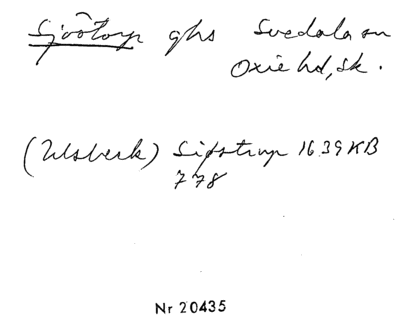 Sjöstorp ghs Svedala sn
Oxie hd, Sk.
(Ulsbeck) Siöstrup 1639 KB
778
Nr 20435